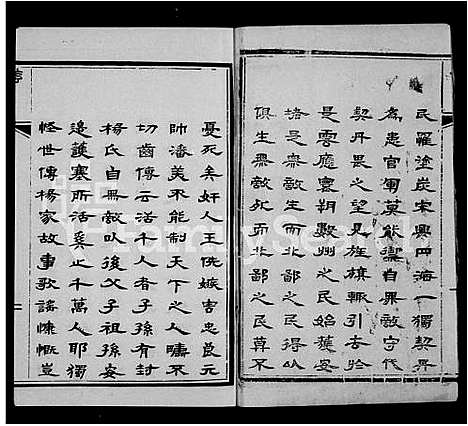 民罹塗炭宋興四海一獨契丹
為患官軍莫能禦自無敵守代
契丹畏之望見旌旗輒引去於
是雲應寰朔數州之民始獲安
堵是無敵生而北鄙之民得以
俱生無敵死而北鄙之民莫不
憂死矣奸人王侁嫉害忠良元
帥潘美不能制天下之人嘯不
切齒傳云活千人者子孫有封
楊氏自無敵以後父子祖孫安
邊護塞所活奚止千萬人耶獨
怪世傳楊家故事歌謠慷慨豈
FamilySearch